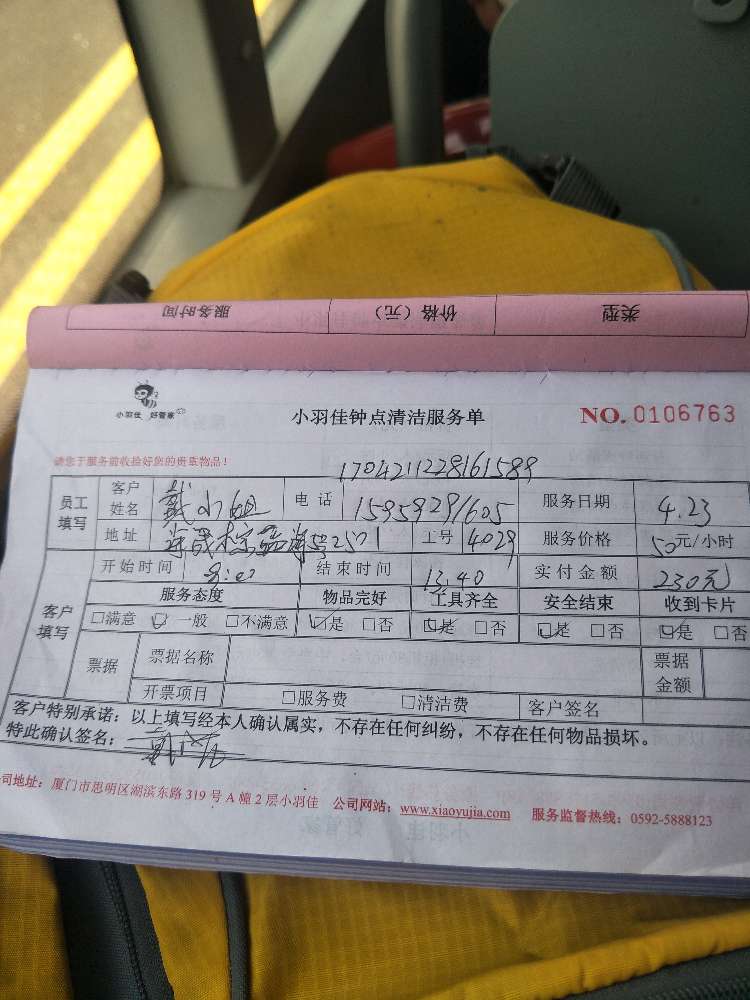 服务时间 价格（元） 类型
小羽佳 好管家
小羽佳钟点清洁服务单 NO. 0106763
请您于服务前收拾好您的贵重物品！
1704211228161589
员工填写 客户姓名 戴小姐 电话 15959291605 服务日期 4.23
地址 工号 4029 服务价格 50元/小时
客户填写 开始时间 结束时间 13.40 实付金额 230元
服务态度 物品完好 工具齐全 安全结束 收到卡片
□满意 ☑一般 □不满意 ☑是 □否 ☑是 □否 ☑是 □否 ☑是 □否
票据 票据名称 票据金额
开票项目 □服务费 □清洁费 客户签名
客户特别承诺：以上填写经本人确认属实，不存在任何纠纷，不存在任何物品损坏。
特此确认签名：
司地址：厦门市思明区湖滨东路319号A幢2层小羽佳 公司网站：www.xiaoyujia.com 服务监督热线：0592-5888123